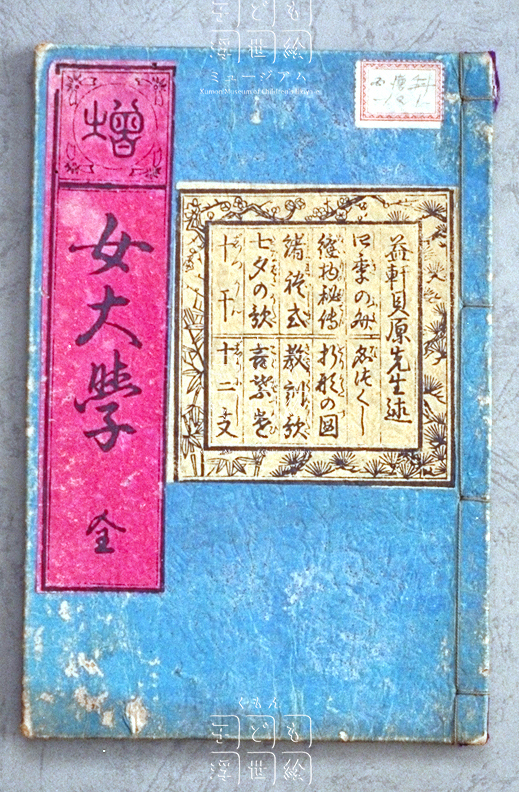 子ども
浮世絵
ミュージアム
Kumon Museum of Children's Ukiyo-e
増
女大學 全
益軒貝原先生述
四季の文
縫物秘傳 折形の図
婚礼式 教訓歌
七夕の歌
十干 十二支
くもん
子ども
浮世絵